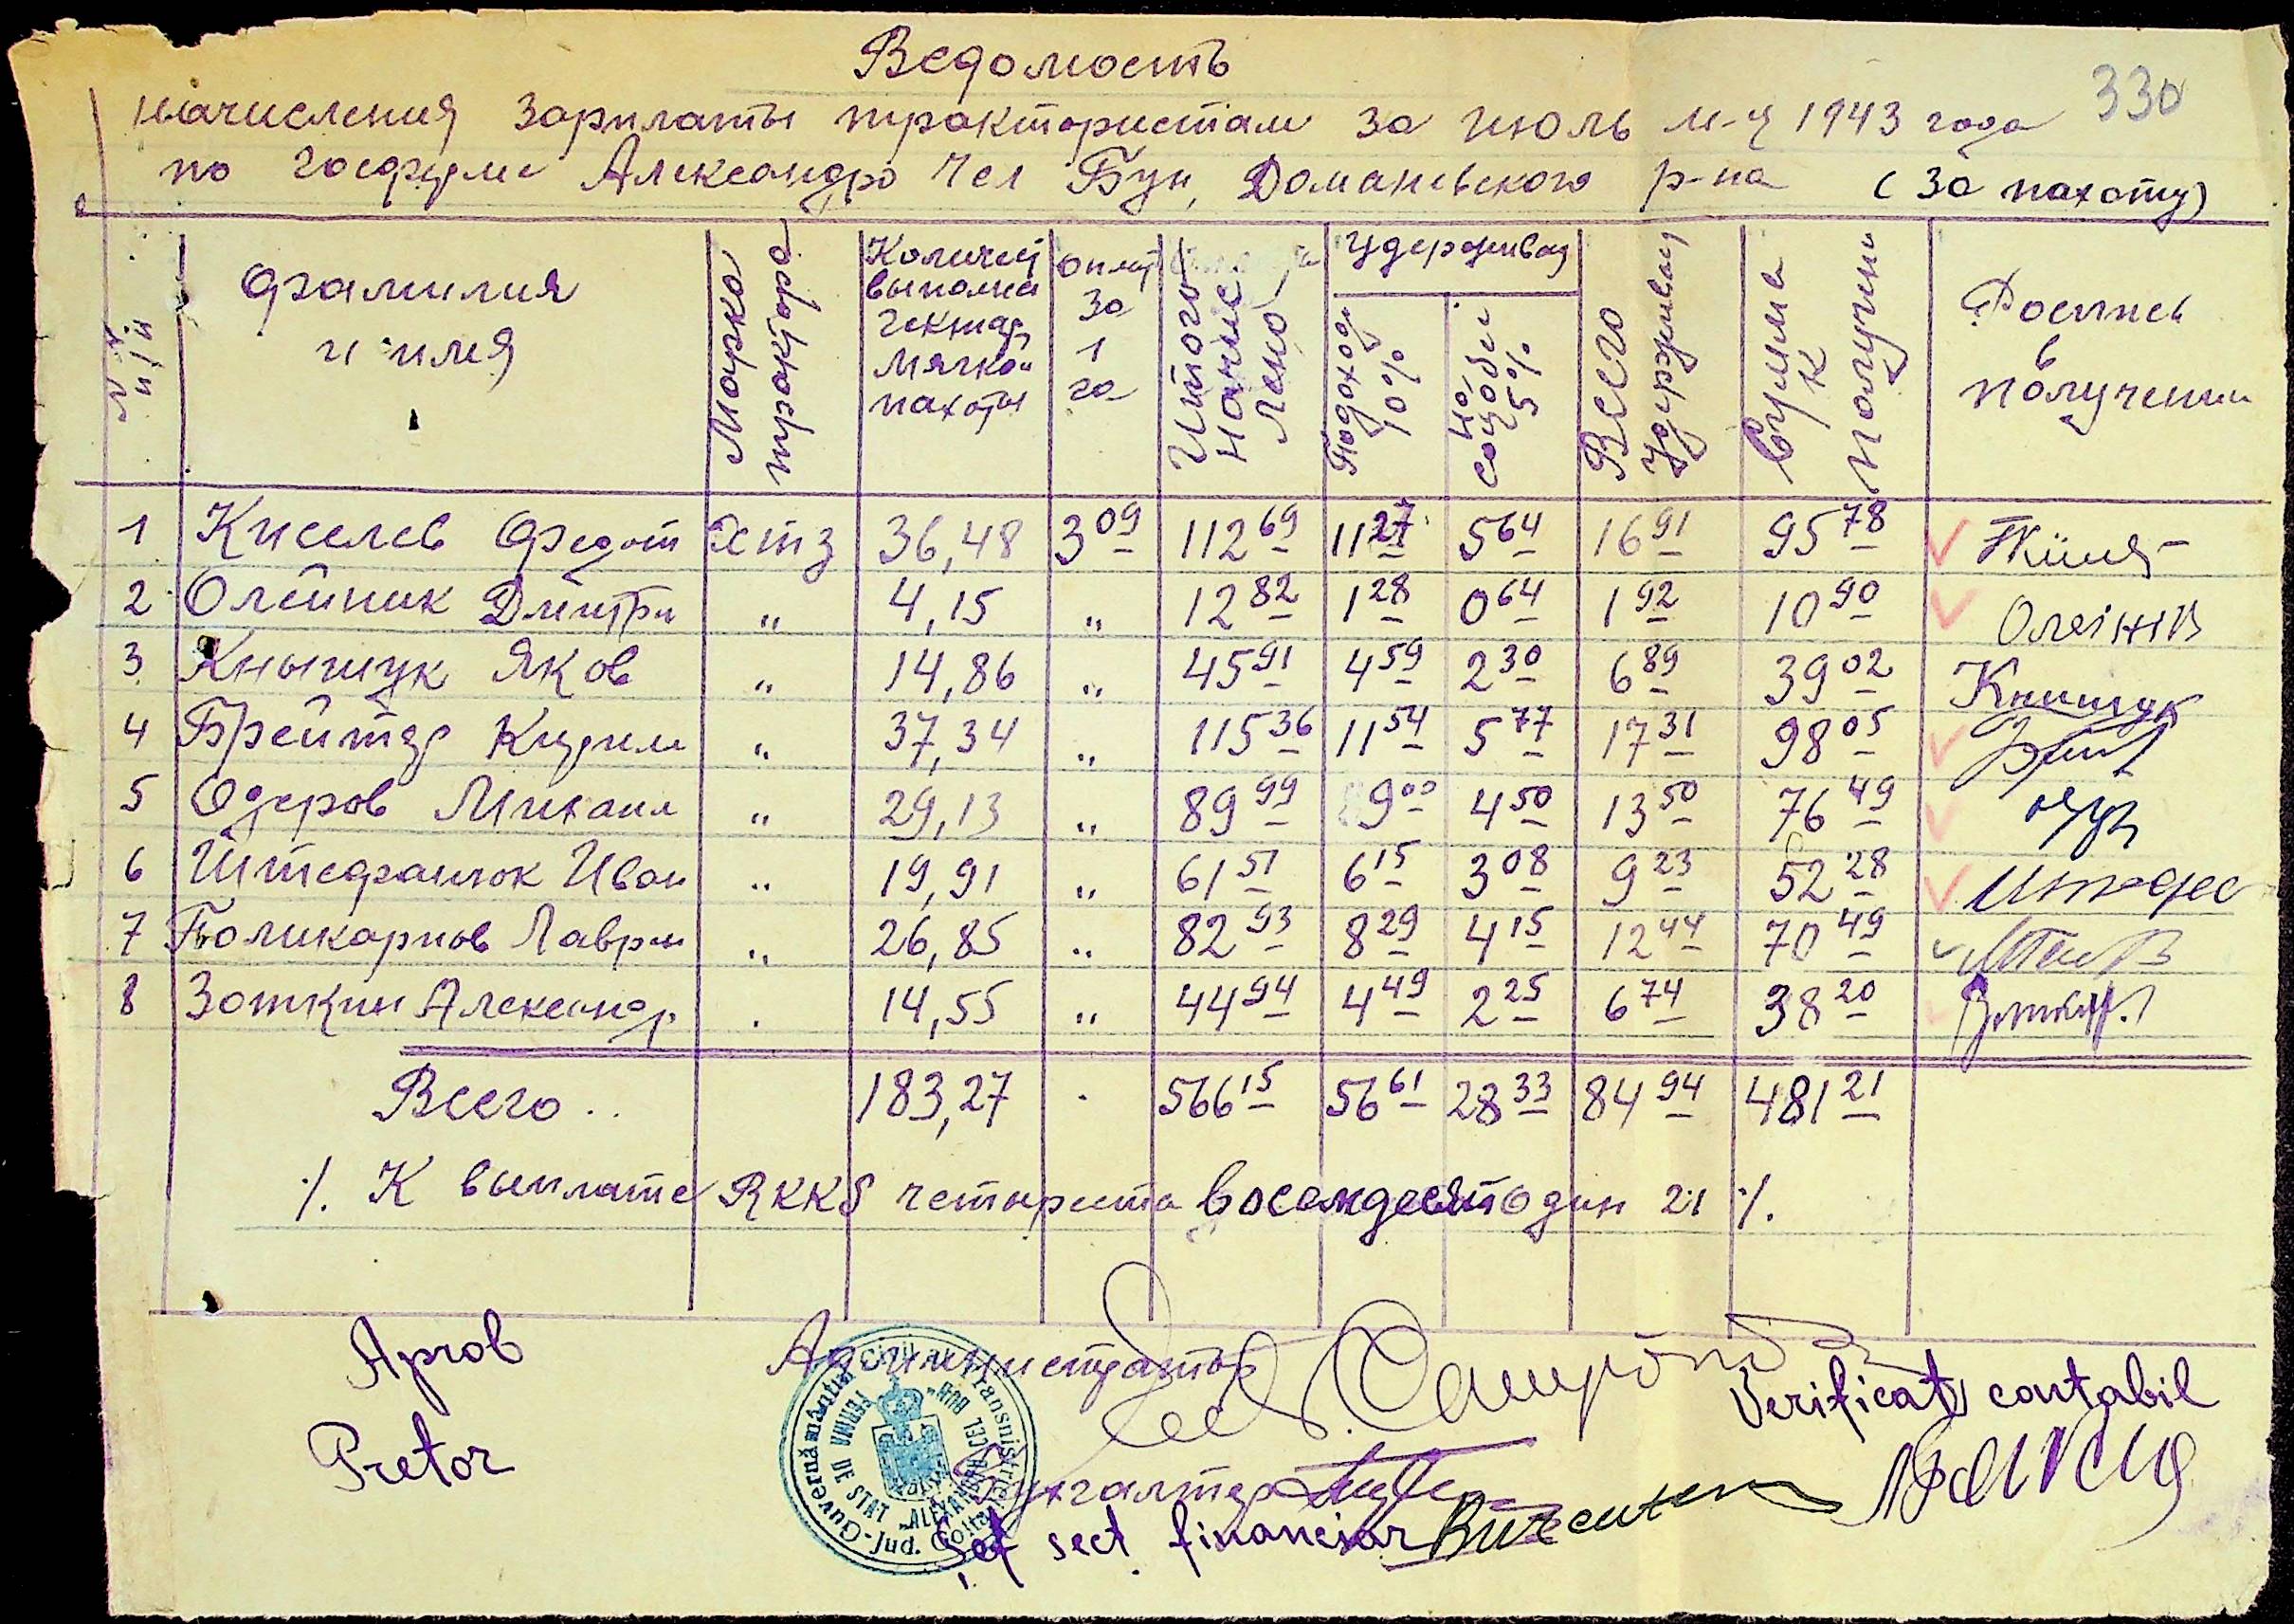 Ведомость
330
начисления зарплаты трактористам за июль м-ц 1943 года
по госферме Александро Чел Бун, Доманевского р-на (за пахоту)
№№ п/п
Фамилия и имя
Марка трактора
Количест выполнен гектар мягкой пахоты
Оплат за 1 га
Итого начислено
Удерживая
Подоход 10%
На соцобес 5%
Всего удерживая
Сумма к получени
Роспись в получении
1 Киселев Федот ХТЗ 36,48 3 09 112 69 11 27 5 64 16 91 95 78
2 Олейник Дмитри " 4,15 " 12 82 1 28 0 64 1 92 10 90 Олейнік
3 Кнышук Яков " 14,86 " 45 91 4 59 2 30 6 89 39 02 Книшук
4 Брейтер Курим " 37,34 " 115 36 11 54 5 77 17 31 98 05
5 Одеров Михаил " 29,13 " 89 99 9 00 4 50 13 50 76 49
6 Штефанюк Иван " 19,91 " 61 51 6 15 3 08 9 23 52 28
7 Поликарпов Лаврен " 26,85 " 82 93 8 29 4 15 12 44 70 49
8 Зоткин Александр . 14,55 " 44 94 4 49 2 25 6 74 38 20
Всего .. 183,27 . 566 15 56 61 28 33 84 94 481 21
·/. К выплате RKKS четыреста восемдесят один 21 ·/.
Aprob
Администратор
Verificat contabil
Pretor
Бухгалтер
Șef sect financiar
Guvernământul Civil al Transnistriei
Jud. Golta
FERMA DE STAT „ALEXANDRU CEL BUN"